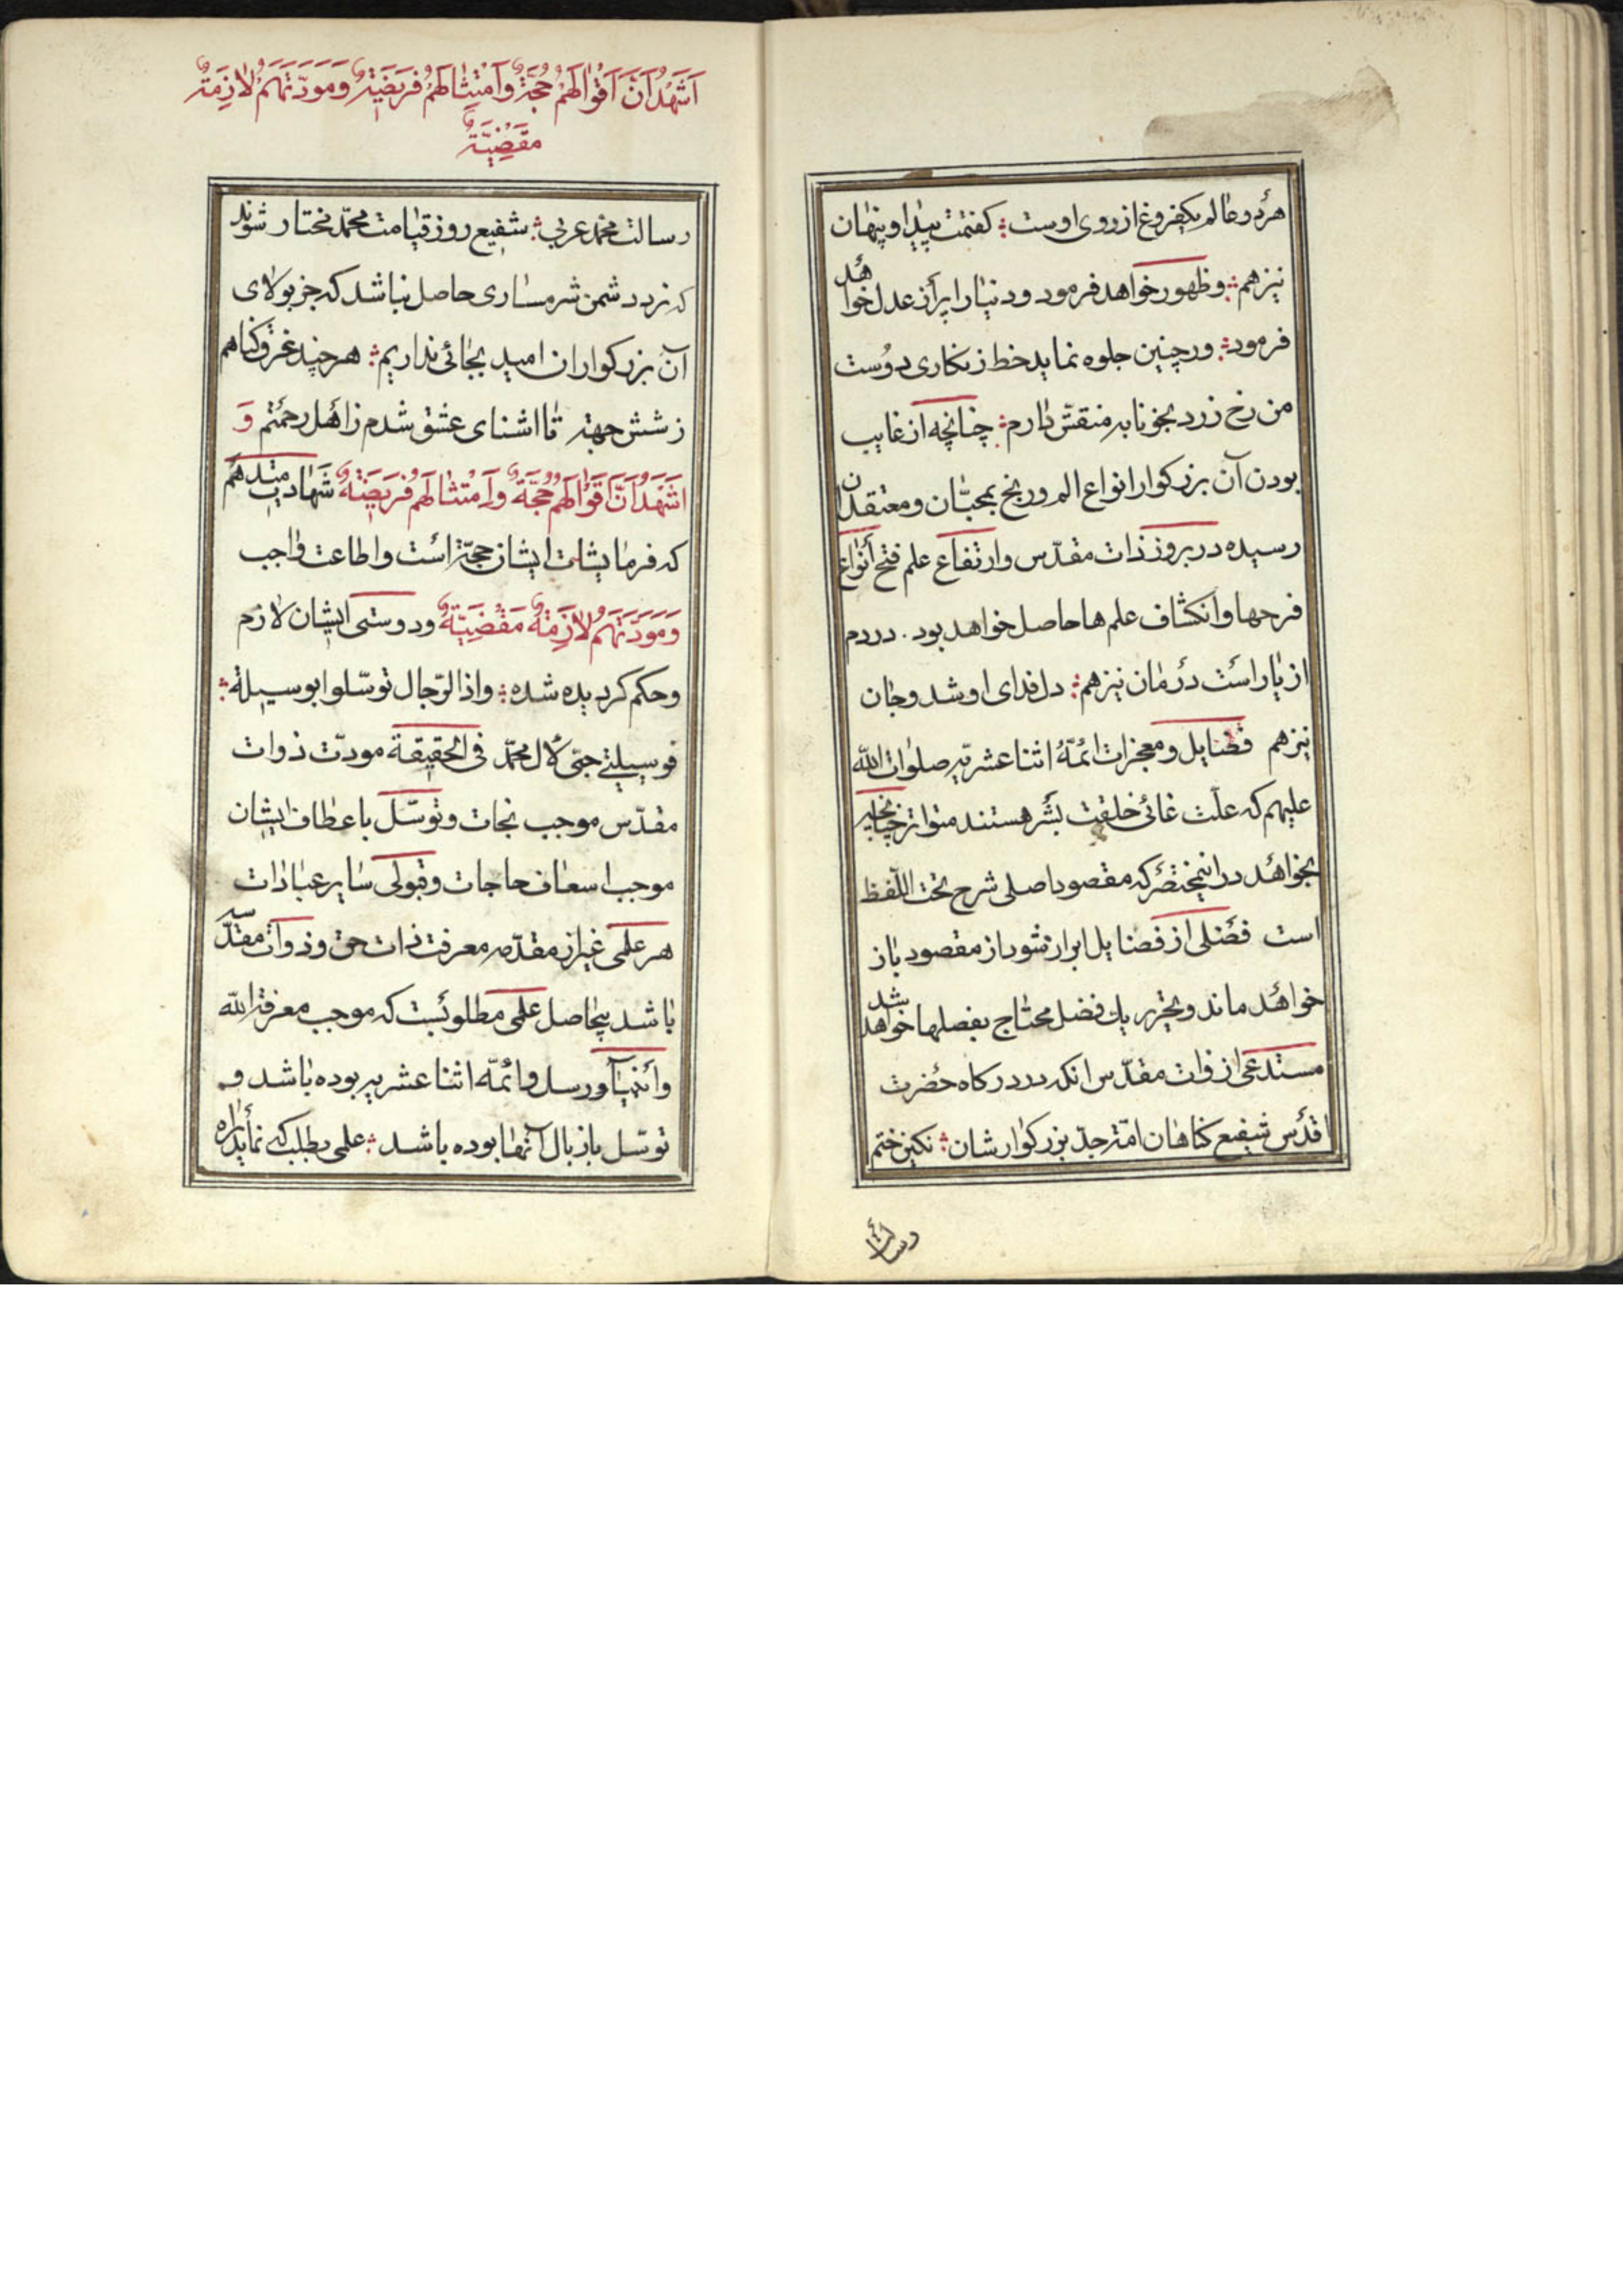 هر دو عالم یکفروغ از روی اوست؛ گفتمت پیدا و پنهان
نیز هم؛ و ظهور خواهد فرمود و دنیا را پر از عدل خواهد
فرمود؛ ور چنین جلوه نماید خط زنکاری دوست
من رخ زرد بخونابه منقش دارم؛ چنانچه از غایب
بودن آن بزرکوار انواع الم و رنج بمحبّان و معتقدان
رسیده در بروز ذات مقدّس و ارتفاع علم فتح انواع
فرحها و انکشاف علم ها حاصل خواهد بود. دردم
از یار است درمان نیز هم؛ دل فدای او شد و جان
نیز هم فضایل و معجزات ائمّهٔ اثنا عشریّه صلوات اللّه
علیهم که علّت غائی خلقت بشر هستند متواتر
بخواهد در اینمختصر که مقصود اصلی شرح تحت اللّفظ
است فضلی از فضایل ابراز شود از مقصود باز
خواهد ماند و بتحریر یک فضل محتاج بفصلها خواهد شد
مستدعی از ذوات مقدّس انکه در درکاه حضرت
اقدس شفیع کناهان امّة جدّ بزرکوارشان؛ نکین ختم
رسالت
اَشْهَدُ اَنَّ اَقْوالَهُمْ حُجَّةٌ وَامْتِثالَهُمْ فَریضَةٌ وَمَوَدَّتَهُمْ لازِمَةٌ
مَقْضِیَّةٌ
رسالت محمد عربی؛ شفیع روز قیامت محمّد مختار شوند
که نزد دشمن شرمساری حاصل نباشد که جز بولای
آن بزرکواران امید بجائی نداریم؛ هر چند غرق کناهم
ز شش جهة تا اشنای عشق شدم ز اهل رحمتم وَ
اَشْهَدُ اَنَّ اَقْوالَهُمْ حُجَّةٌ وَاَمْتثالَهُمْ فَریضَةٌ شهادت میدهم
که فرمایشات ایشان حجّة است و اطاعت واجب
وَمَوَدَّتَهُمْ لازِمَةٌ مَقْضِیَّةٌ و دوستی ایشان لازم
و حکم کردیده شده؛ و اذا الرّجال توسّلوا بوسیلة؛
فوسیلتی حبّی لآل محمّد فی الحقیقة مودّت ذوات
مقدّس موجب نجات و توسّل باعطاف ایشان
موجب اسعاف حاجات و قبولی سایر عبادات
هر علمی غیر از مقدّمه معرفت ذات حق و ذوات مقدّسه
باشد بیحاصل علمی مطلوبست که موجب معرفة اللّه
و انبیآء و رسل و ائمّه اثنا عشریه بوده باشد و
توسّل باذیال آنها بوده باشد؛ علمی بطلب که نماید راه